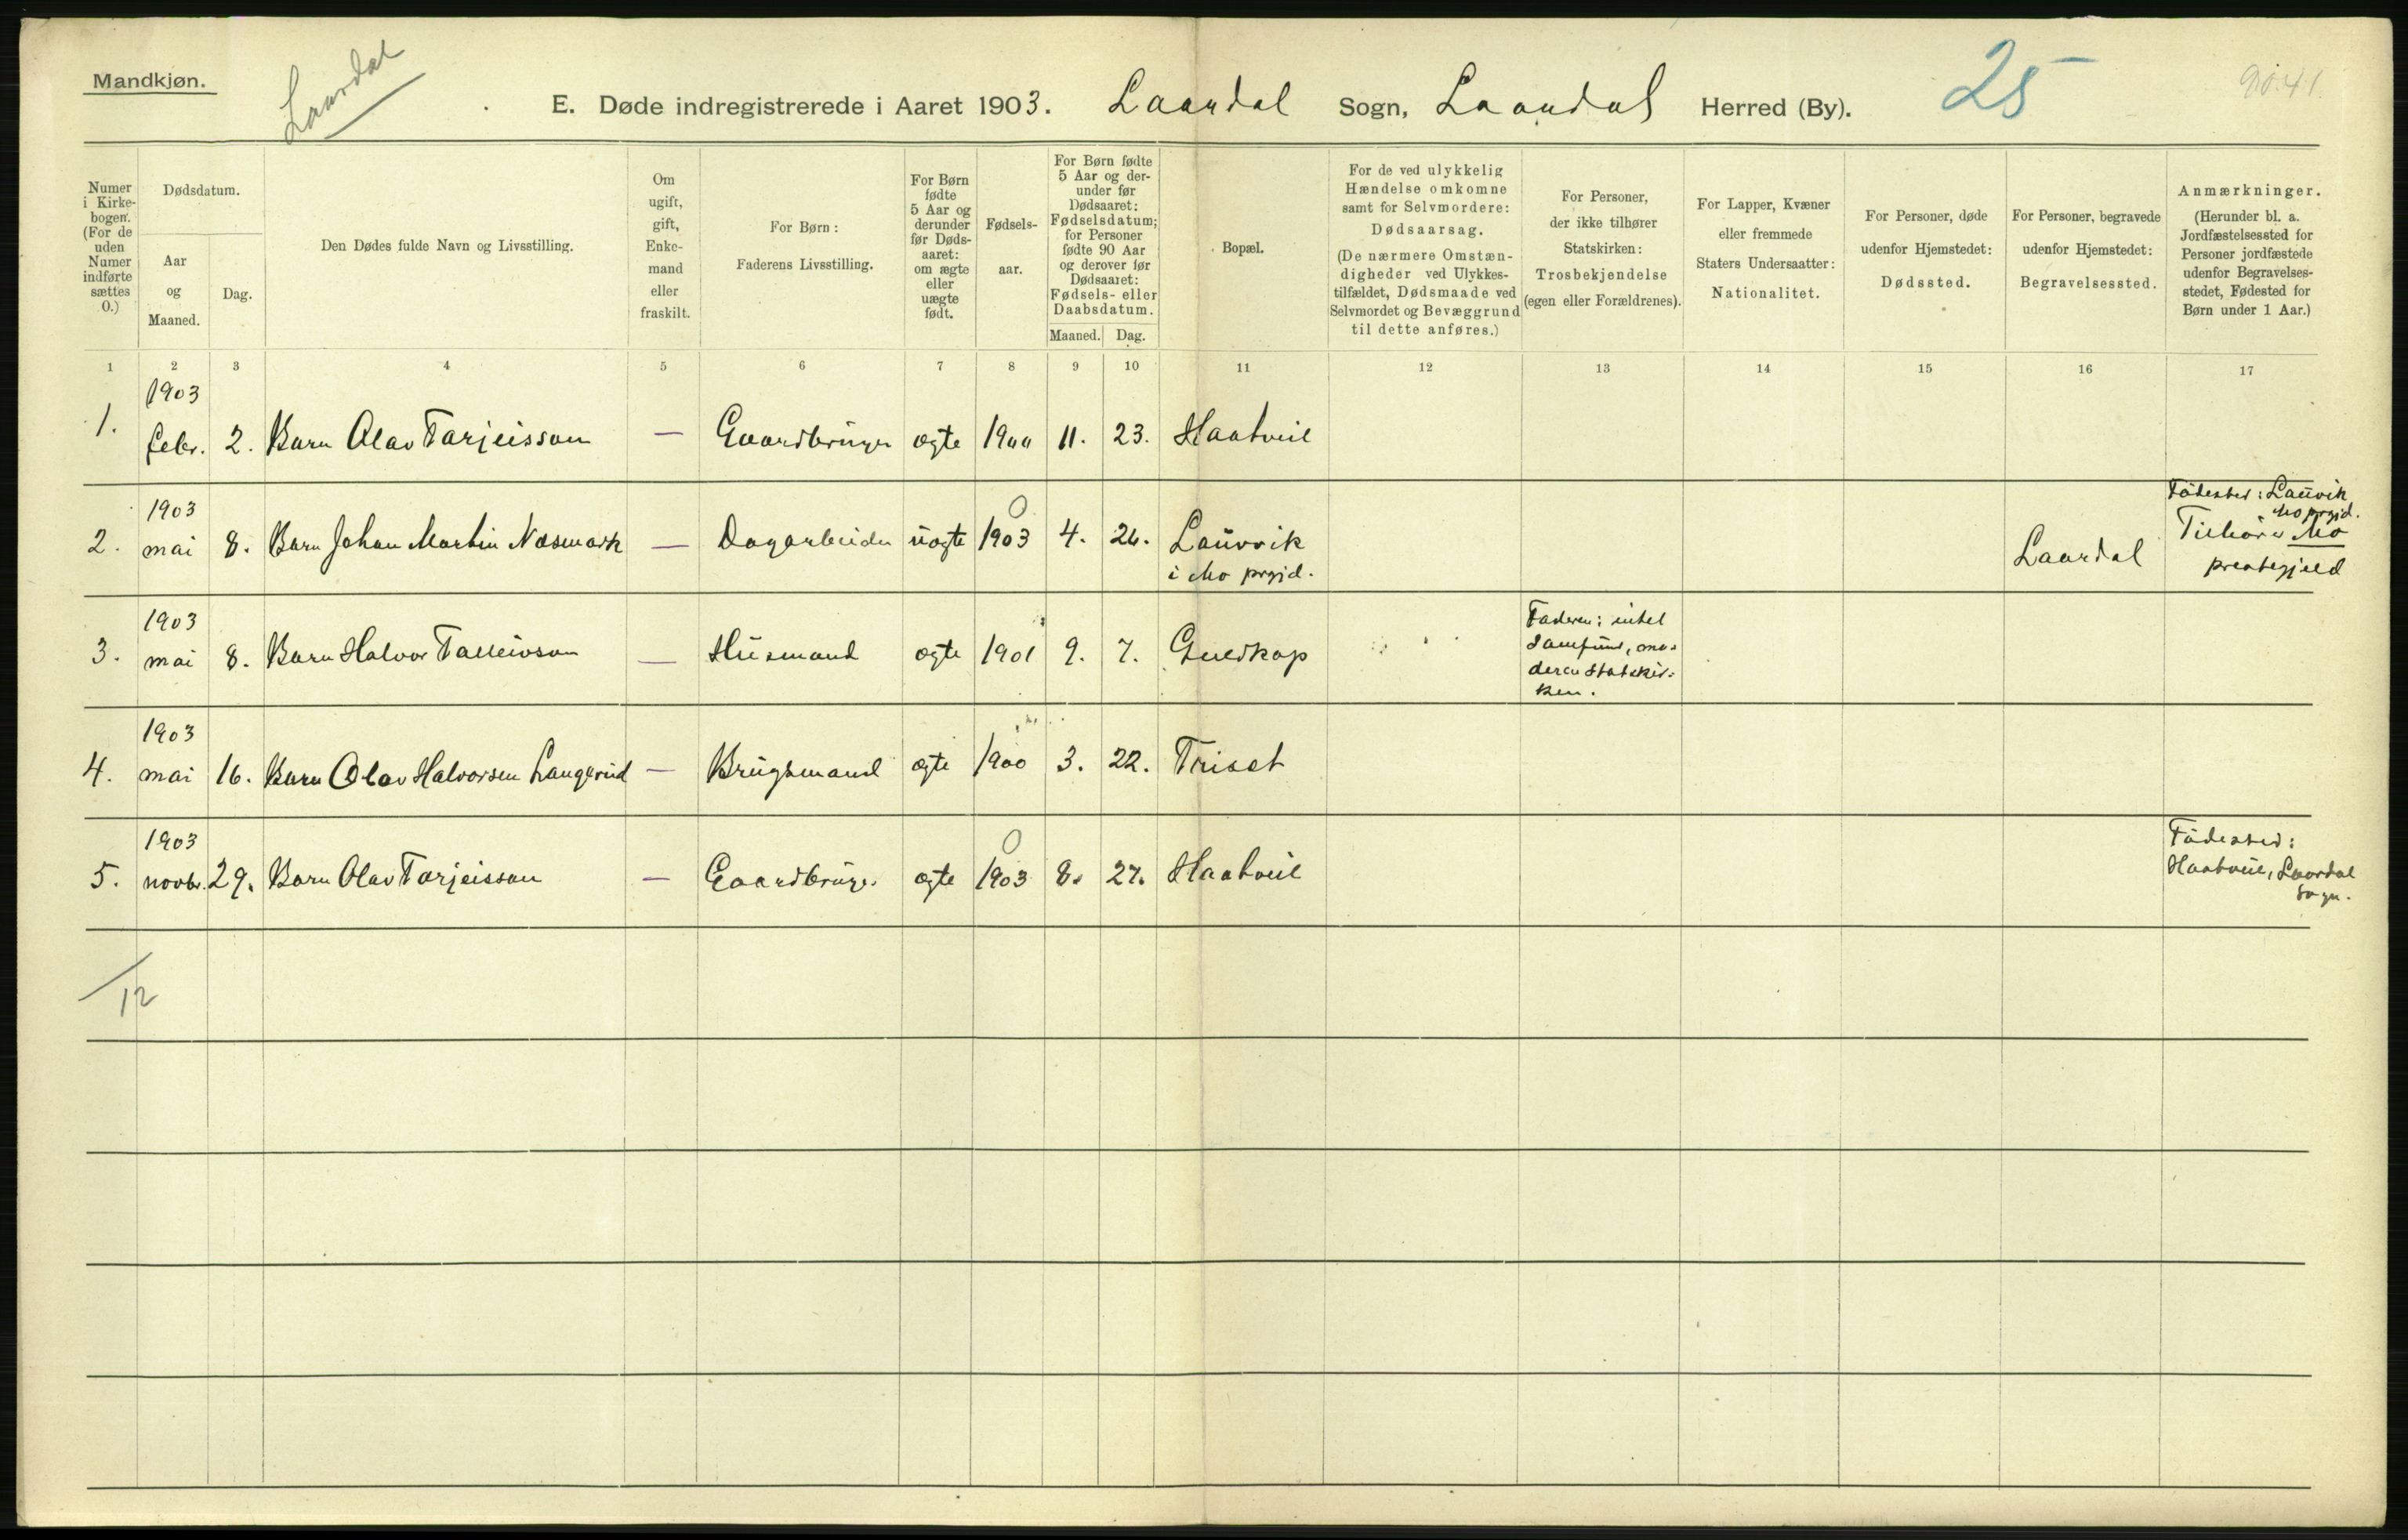 Mandkjøn.
Laardal
E. Døde indregistrerede i Aaret 1903. Laardal Sogn, Laardal Herred (By).
25
Numer i Kirke-bogen. (For de uden Numer indførte sættes 0.)
Dødsdatum.
Aar og Maaned.
Dag.
Den Dødes fulde Navn og Livsstilling.
Om ugift, gift, Enke-mand eller fraskilt.
For Børn: Faderens Livsstilling.
For Børn fødte 5 Aar og derunder før Døds-aaret: om ægte eller uægte født.
Fødsels-aar.
For Børn fødte 5 Aar og der-under før Dødsaaret: Fødselsdatum; for Personer fødte 90 Aar og derover før Dødsaaret: Fødsels- eller Daabsdatum.
Maaned. Dag.
Bopæl.
For de ved ulykkelig Hændelse omkomne samt for Selvmordere: Dødsaarsag. (De nærmere Omstæn-digheder ved Ulykkes-tilfældet, Dødsmaade ved Selvmordet og Bevæggrund til dette anføres.)
For Personer, der ikke tilhører Statskirken: Trosbekjendelse (egen eller Forældrenes).
For Lapper, Kvæner eller fremmede Staters Undersaatter: Nationalitet.
For Personer, døde udenfor Hjemstedet: Dødssted.
For Personer, begravede udenfor Hjemstedet: Begravelsessted.
Anmærkninger. (Herunder bl. a. Jordfæstelsessted for Personer jordfæstede udenfor Begravelses-stedet, Fødested for Børn under 1 Aar.)
1 2 3 4 5 6 7 8 9 10 11 12 13 14 15 16 17
1903
1. febr. 2. Barn Olav Tarjeisson — Gaardbruger ægte 1900 11. 23. Haatveit
1903 0 Fødested: Lauvik
Mo prgjd.
2. mai 8. Barn Johan Martin Næsmark — Dagarbeider uægte 1903 4. 26. Lauvvik Laardal Tilhører Mo
i Mo prgjd. prestegjeld
1903 Faderen: intet
3. mai 8. Barn Halvor Talleivson — Husmand ægte 1901 9. 7. samfund, mo-
deren statskir-
ken.
1903
4. mai 16. Barn Olav Halvorsen Langerud — Brugsmand ægte 1900 3. 22. Triset
1903 0 Fødested:
5. novbr. 29. Barn Olav Tarjeisson — Gaardbruger ægte 1903 8. 27. Haatveit Haatveit, Laardal
sogn.
12